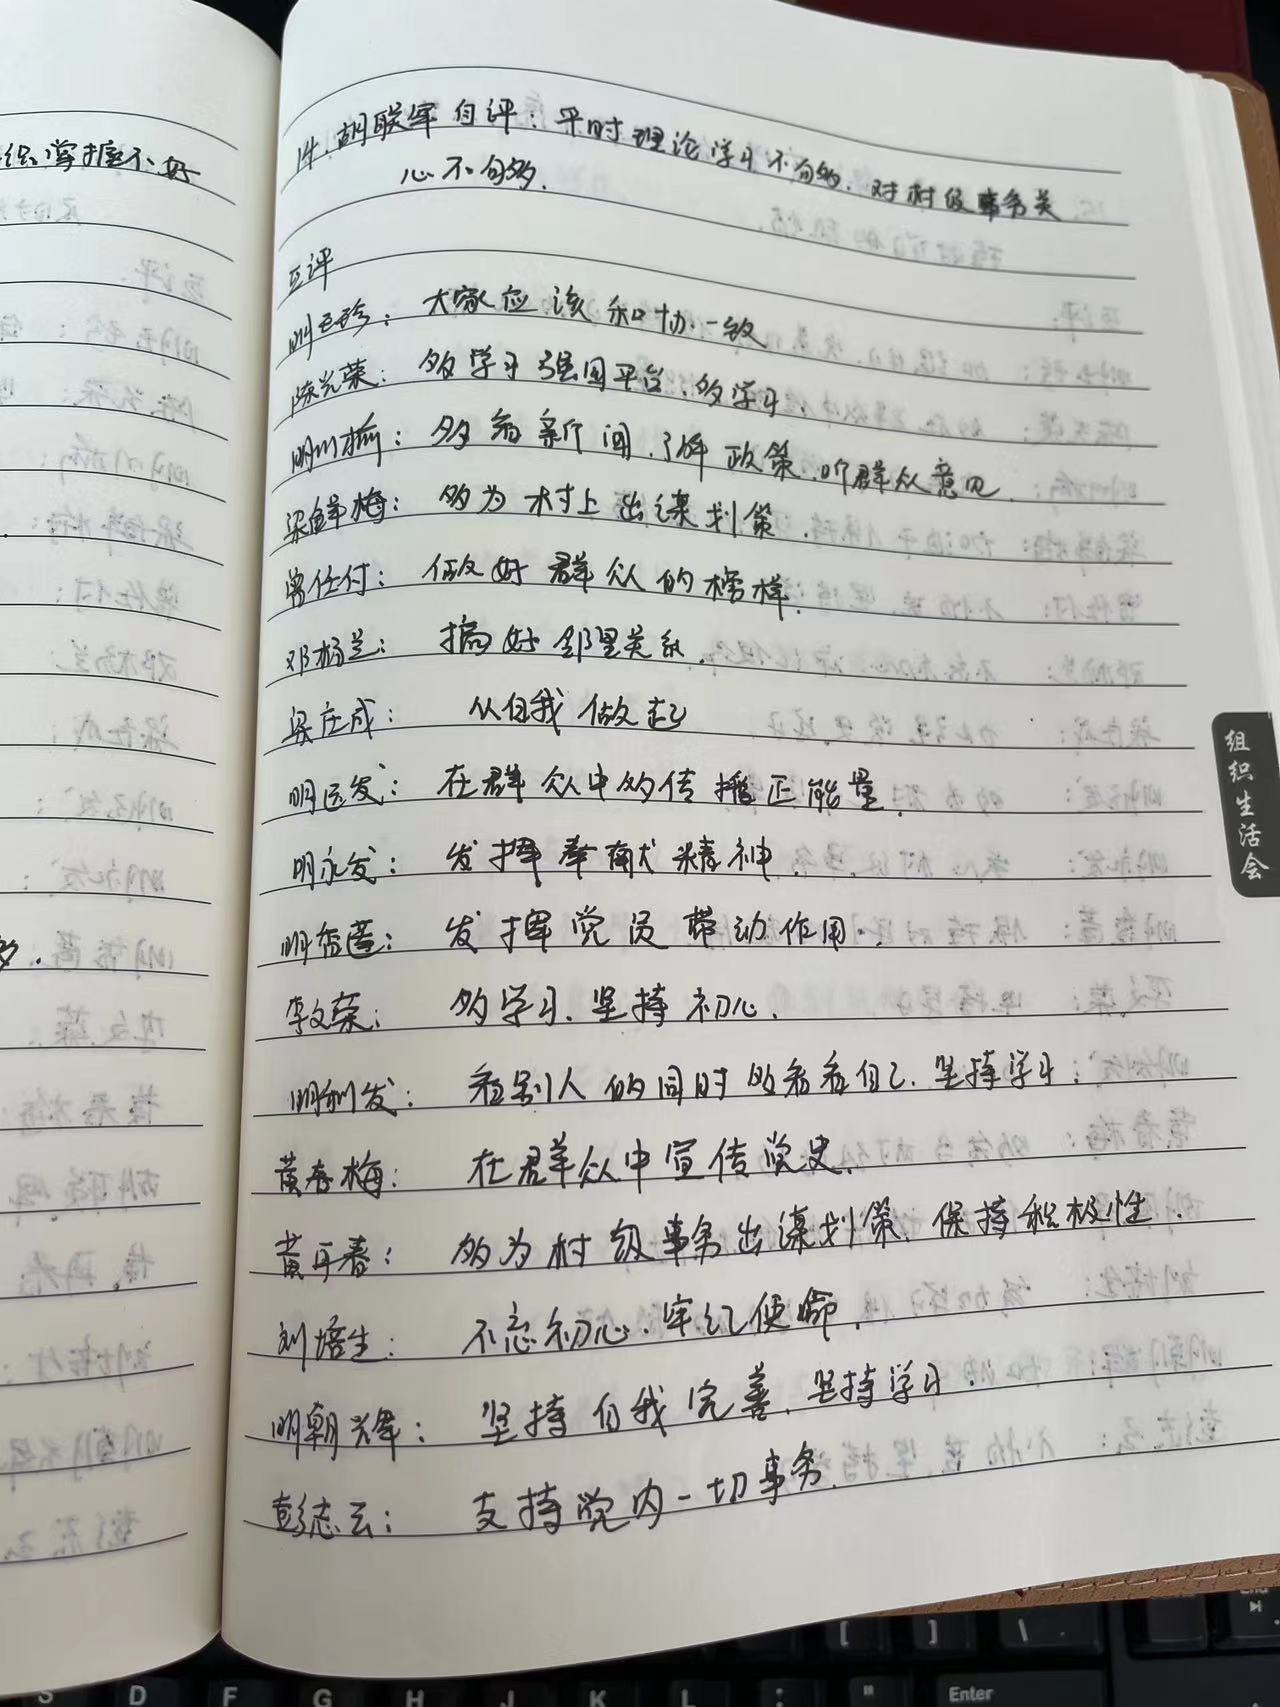 织掌握不好
14. 胡联军自评：平时理论学习不够多，对村级事务关
心不够多.
互评
明玉珍：大家应该和协一致
陈光荣：多学习强国平台，多学习.
明川榆：多看新闻，了解政策，听群众意见.
梁鲜梅：多为村上出谋划策.
曾任付：做好群众的榜样.
邓杨兰：搞好邻里关系.
梁庄成：从自我做起
明运发：在群众中多传播正能量.
明永发：发挥奉献精神.
明蓉：发挥党员带动作用.
李文荣：多学习、坚持初心.
明利发：看别人的同时多看看自己，坚持学习.
黄春梅：在群众中宣传党史.
黄再春：多为村级事务出谋划策，保持积极性.
刘培生：不忘初心，牢记使命.
明朝辉：坚持自我完善，坚持学习.
彭志云：支持党内一切事务.
多.
组织生活会
S D F G H J K L : " Enter
[ ] \
End